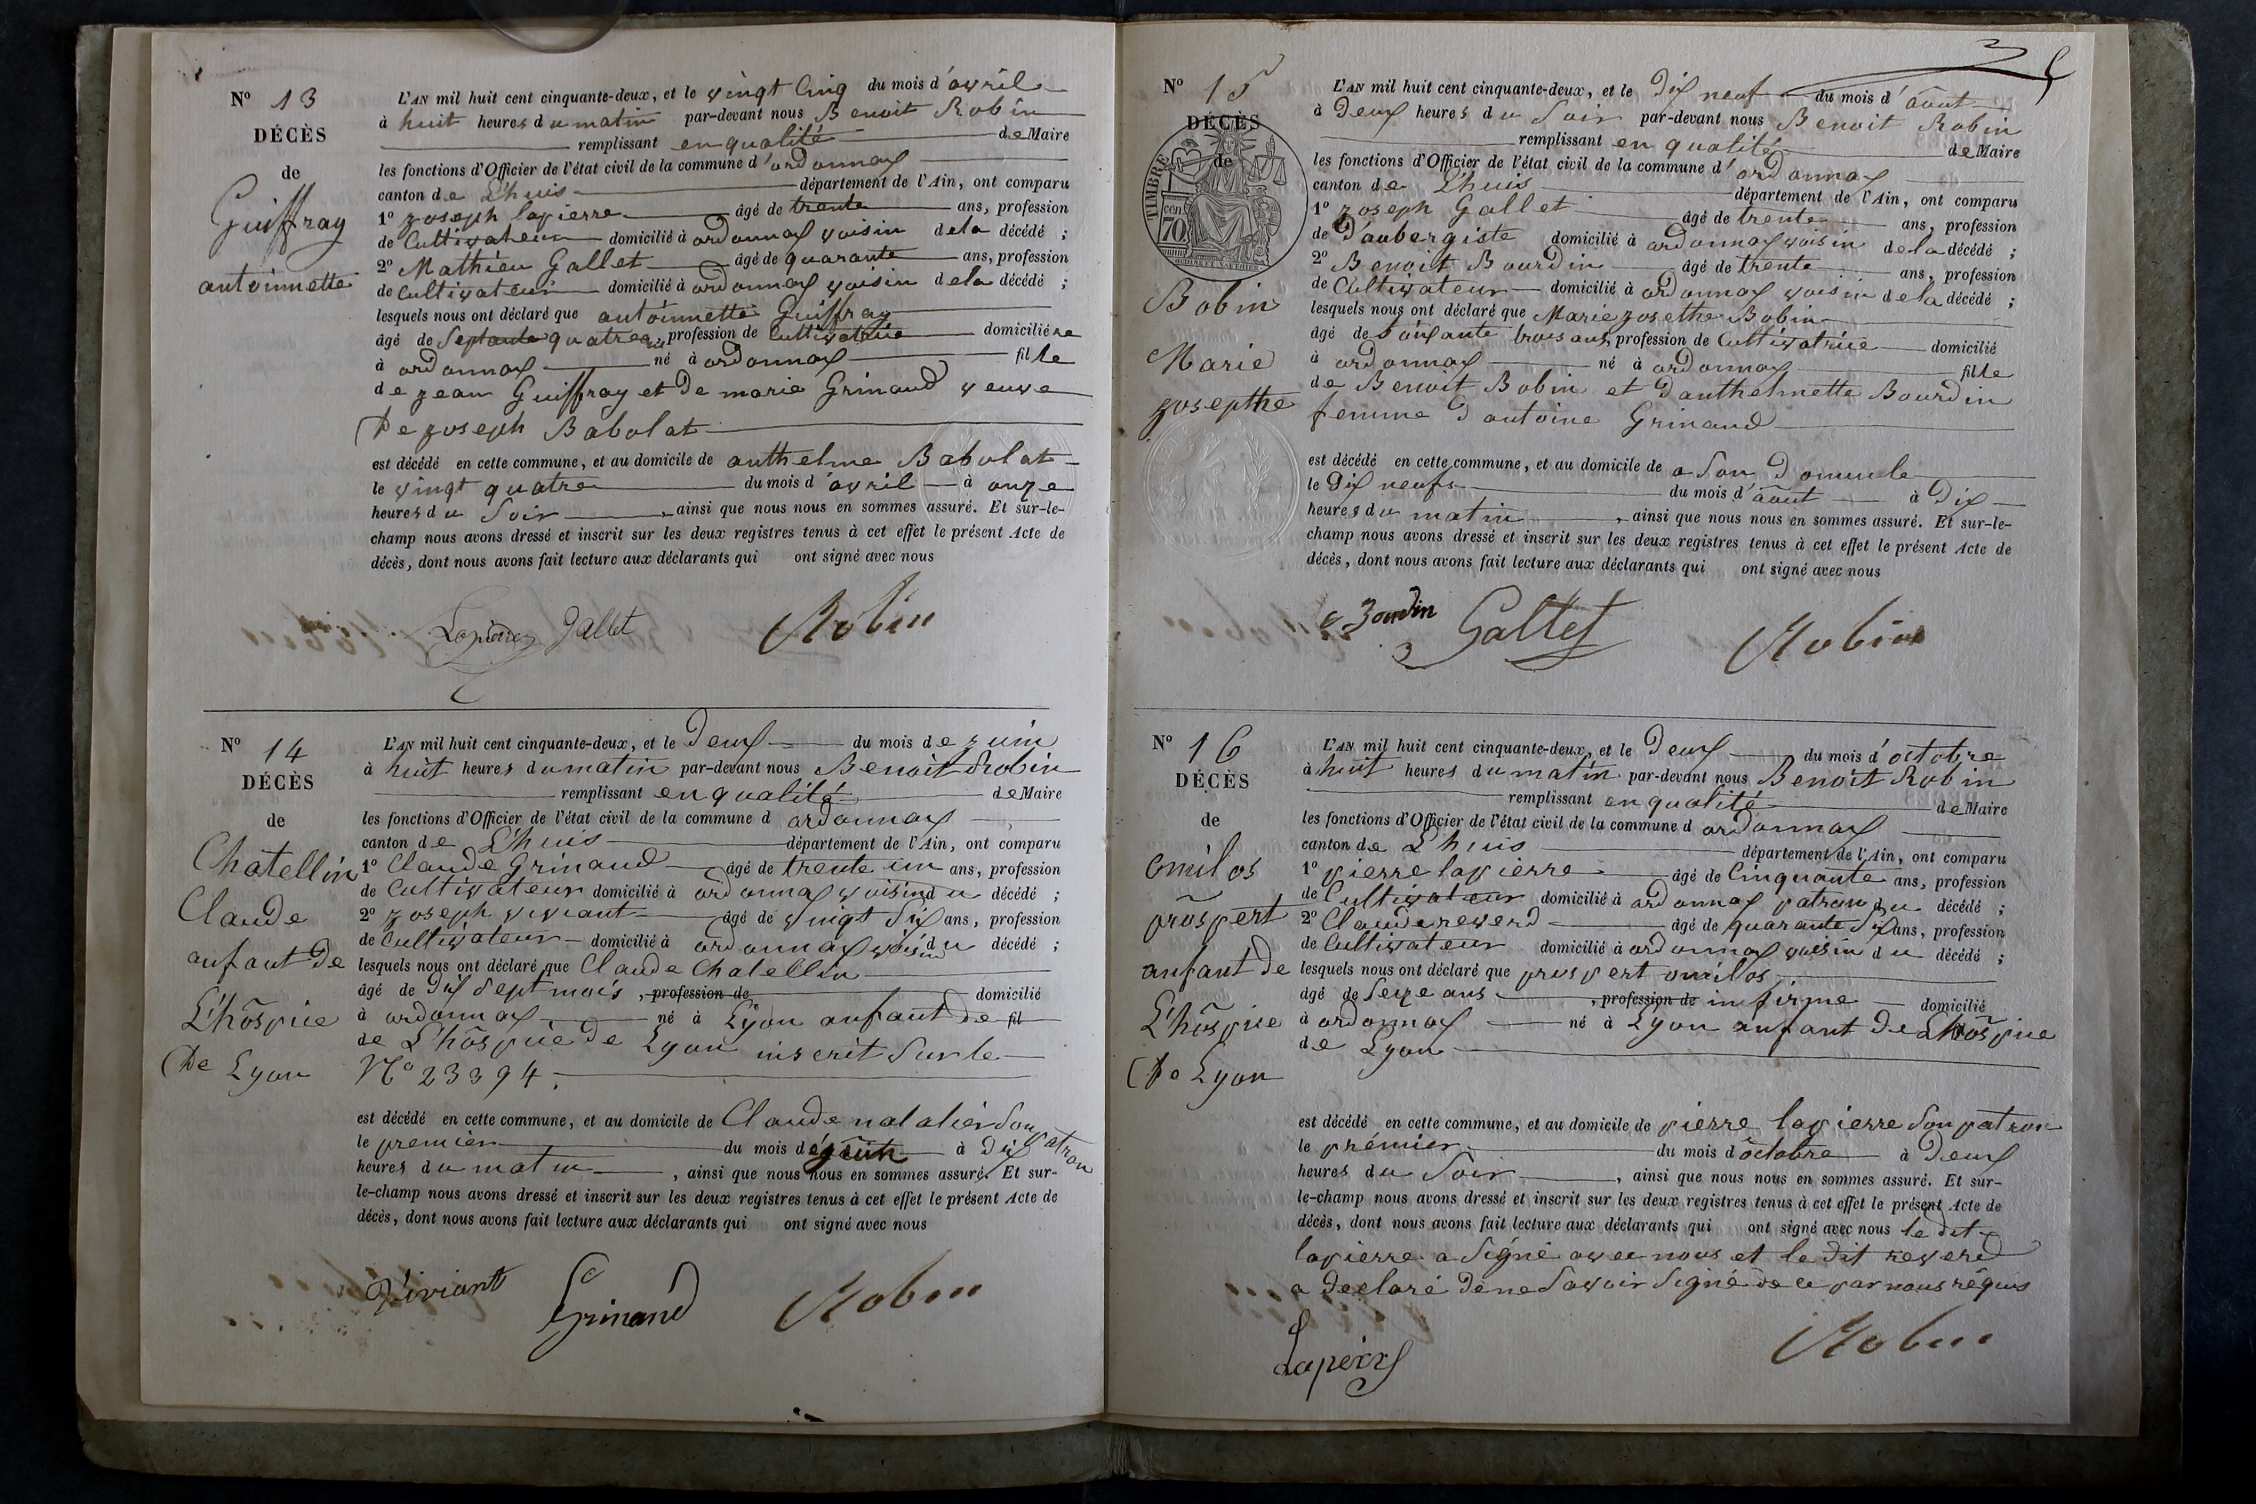 N° 13
DÉCÈS
de
Guiffray
antoinnette
L'AN mil huit cent cinquante-deux, et le vingt Cinq du mois d'avril
à huit heures du matin par-devant nous Benoit Robin
remplissant en qualité de Maire
les fonctions d'Officier de l'état civil de la commune d'ordonnax
canton de L'huis département de l'Ain, ont comparu
1° joseph lapierre âgé de trente ans, profession
de Cultivateur domicilié à ordonnax voisin de la décédé ;
2° Mathieu Gallet âgé de quarante ans, profession
de Cultivateur domicilié à ordonnax voisin de la décédé ;
lesquels nous ont déclaré que antoinnette Guiffray
âgé de Septante quatre ans profession de Cultivatrice domiciliére
à ordonnax né à ordonnax fille
de jean Guiffray et De marie Grinand veuve
De joseph Babolat
est décédé en cette commune, et au domicile de anthelme Babolat
le vingt quatre du mois d'avril à onze
heures du Soir, ainsi que nous nous en sommes assuré. Et sur-le-
champ nous avons dressé et inscrit sur les deux registres tenus à cet effet le présent Acte de
décès, dont nous avons fait lecture aux déclarants qui ont signé avec nous
Lapierre Gallet Robin
N° 14
DÉCÈS
de
Chatellin
Claude
anfant De
L'hôspice
De Lyon
L'AN mil huit cent cinquante-deux, et le Deux du mois de juin
à huit heures du matin par-devant nous Benoit Robin
remplissant en qualité de Maire
les fonctions d'Officier de l'état civil de la commune d ordonnax
canton de L'huis département de l'Ain, ont comparu
1° Claude Grinand âgé de trente un ans, profession
de Cultivateur domicilié à ordonnax voisin du décédé ;
2° joseph viviant âgé de vingt Six ans, profession
de Cultivateur domicilié à ordonnax voisin du décédé ;
lesquels nous ont déclaré que Claude Chatellin
âgé de Dix Sept mois, profession de domicilié
à ordonnax né à Lyon anfant De fil
de L'hôspice De Lyon inscrit Sur le
N° 23394.
est décédé en cette commune, et au domicile de Claude nalalier Son patron
le premier du mois de juin à Dix
heures du matin, ainsi que nous nous en sommes assuré. Et sur-
le-champ nous avons dressé et inscrit sur les deux registres tenus à cet effet le présent Acte de
décès, dont nous avons fait lecture aux déclarants qui ont signé avec nous
Viviant Grinand Robin
N° 15
DÉCÈS
de
TIMBRE
70 cen
Bobin
Marie
josepthe
L'AN mil huit cent cinquante-deux, et le Dix neuf du mois d'août
à Deux heures du Soir par-devant nous Benoit Robin
remplissant en qualité de Maire
les fonctions d'Officier de l'état civil de la commune d'ordonnax
canton de L'huis département de l'Ain, ont comparu
1° joseph Gallet âgé de trente ans, profession
de D'aubergiste domicilié à ordonnax voisin de la décédé ;
2° Benoit Bourdin âgé de trente ans, profession
de Cultivateur domicilié à ordonnax voisin de la décédé ;
lesquels nous ont déclaré que Marie josethe Bobin
âgé de Soixante trois ans, profession de Cultivatrice domicilié
à ordonnax né à ordonnax fille
de Benoit Bobin et D'anthelmette Bourdin
femme D'antoine Grinand
est décédé en cette commune, et au domicile de a Son Domicile
le Dix neufs du mois d'août à Dix
heures du matin, ainsi que nous nous en sommes assuré. Et sur-le-
champ nous avons dressé et inscrit sur les deux registres tenus à cet effet le présent Acte de
décès, dont nous avons fait lecture aux déclarants qui ont signé avec nous
Gallet Robin
N° 16
DÉCÈS
de
omilos
prôspert
anfant de
L'hôspice
De Lyon
L'AN mil huit cent cinquante-deux, et le Deux du mois d'octobre
à huit heures du matin par-devant nous Benoit Robin
remplissant en qualité de Maire
les fonctions d'Officier de l'état civil de la commune d ordonnax
canton de L'huis département de l'Ain, ont comparu
1° pierre lapierre âgé de Cinquante ans, profession
de Cultivateur domicilié à ordonnax patron du décédé ;
2° Claude reverd âgé de quarante Six ans, profession
de Cultivateur domicilié à ordonnax voisin du décédé ;
lesquels nous ont déclaré que prospert omilos
âgé de Seize ans, profession de infirme domicilié
à ordonnax né à Lyon anfant De Lhôspice
de Lyon
est décédé en cette commune, et au domicile de pierre lapierre Son patron
le prémier du mois d'octobre à Deux
heures du Soir, ainsi que nous nous en sommes assuré. Et sur-
le-champ nous avons dressé et inscrit sur les deux registres tenus à cet effet le présent Acte de
décès, dont nous avons fait lecture aux déclarants qui ont signé avec nous le dit
lapierre a Signé avec nous et le dit reverd
a Declaré De ne Savoir Signé De ce par nous réquis
Lapierre Robin